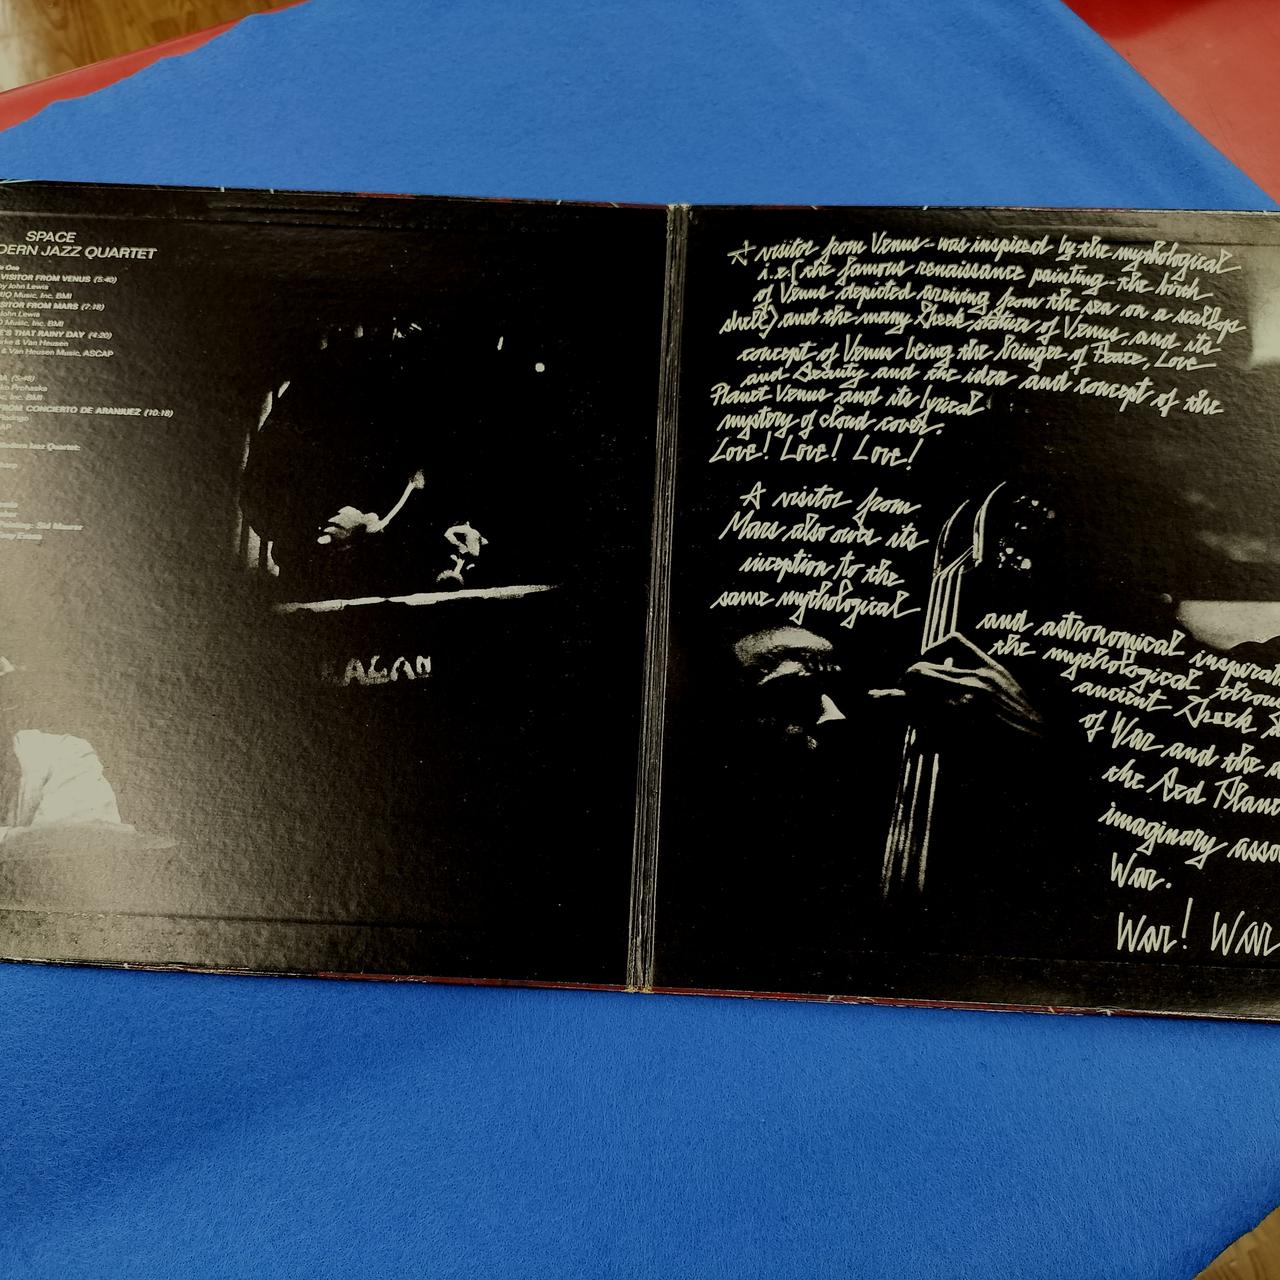 SPACE
DERN JAZZ QUARTET
One
VISITOR FROM VENUS (5:40)
by John Lewis
MJQ Music, Inc. BMI
ISITOR FROM MARS (7:18)
John Lewis
Music, Inc. BMI
E'S THAT RAINY DAY (4:20)
rke & Van Heusen
& Van Heusen Music, ASCAP
(5:48)
ko Prohaska
c, Inc. BMI
FROM CONCIERTO DE ARANJUEZ (10:18)
Rodrigo
AP
Modern Jazz Quartet:
Painting: Sid Maurer
Tony Evans
KAGAN
A visitor from Venus - was inspired by the mythological
i.e. (the famous renaissance painting - the birth
of Venus depicted arriving from the sea on a scallop
shell) and the many Greek statues of Venus, and its
concept of Venus being the bringer of Peace, Love
and Beauty and the idea and concept of the
Planet Venus and its lyrical
mystery of cloud cover.
Love! Love! Love!
A visitor from
Mars also owes its
inception to the
same mythological
and astronomical inspirati
the mythological throu
ancient Greek
of War and the
the Red Plane
imaginary asso
War.
War! War